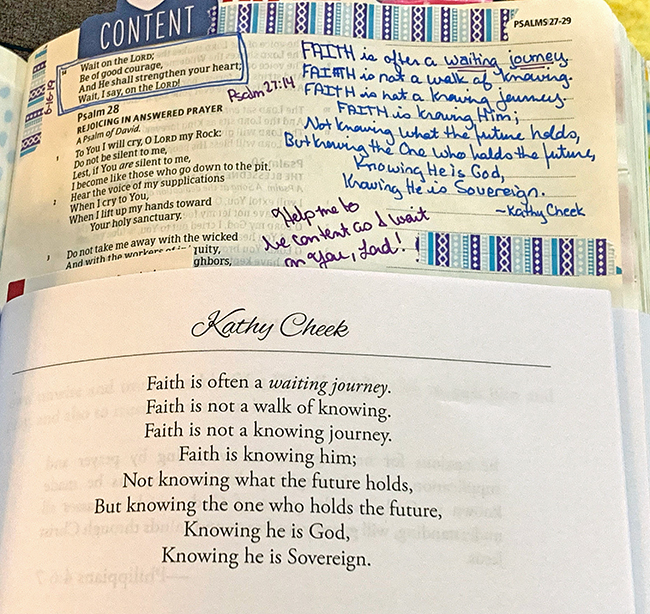 CONTENT
PSALMS 27-29
Wait on the LORD;
Be of good courage,
And He shall strengthen your heart;
Wait, I say, on the LORD!
6-16-19
Psalm 27:14
Psalm 28
REJOICING IN ANSWERED PRAYER
A Psalm of David.
1 To You I will cry, O LORD my Rock:
Do not be silent to me,
Lest, if You are silent to me,
I become like those who go down to the pit.
2 Hear the voice of my supplications
When I cry to You,
When I lift up my hands toward
Your holy sanctuary.
3 Do not take me away with the wicked
And with the workers of iniquity,
ghbors,
FAITH is often a waiting journey.
FAITH is not a walk of knowing.
FAITH is not a knowing journey
FAITH is knowing Him;
Not knowing what the future holds,
But knowing the One who holds the future,
Knowing He is God,
Knowing He is Sovereign.
~Kathy Cheek
Help me to
be content as I wait
on You, Lord!
Kathy Cheek
Faith is often a waiting journey.
Faith is not a walk of knowing.
Faith is not a knowing journey.
Faith is knowing him;
Not knowing what the future holds,
But knowing the one who holds the future,
Knowing he is God,
Knowing he is Sovereign.